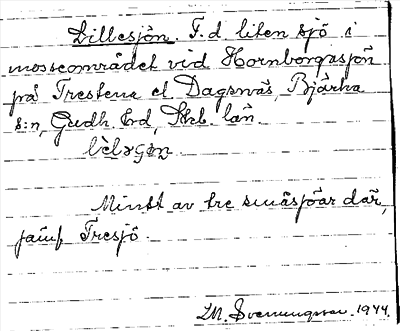 Lillesjön. F.d liten sjö i
mosseområdet vid Hornborgasjön
på Trestena el. Dagsnäs, Bjärka
s:n, Gudh. hd, Skb. län.
Minst av tre småsjöar där,
jämf Tresjö.
M. Svenungsson. 1944.